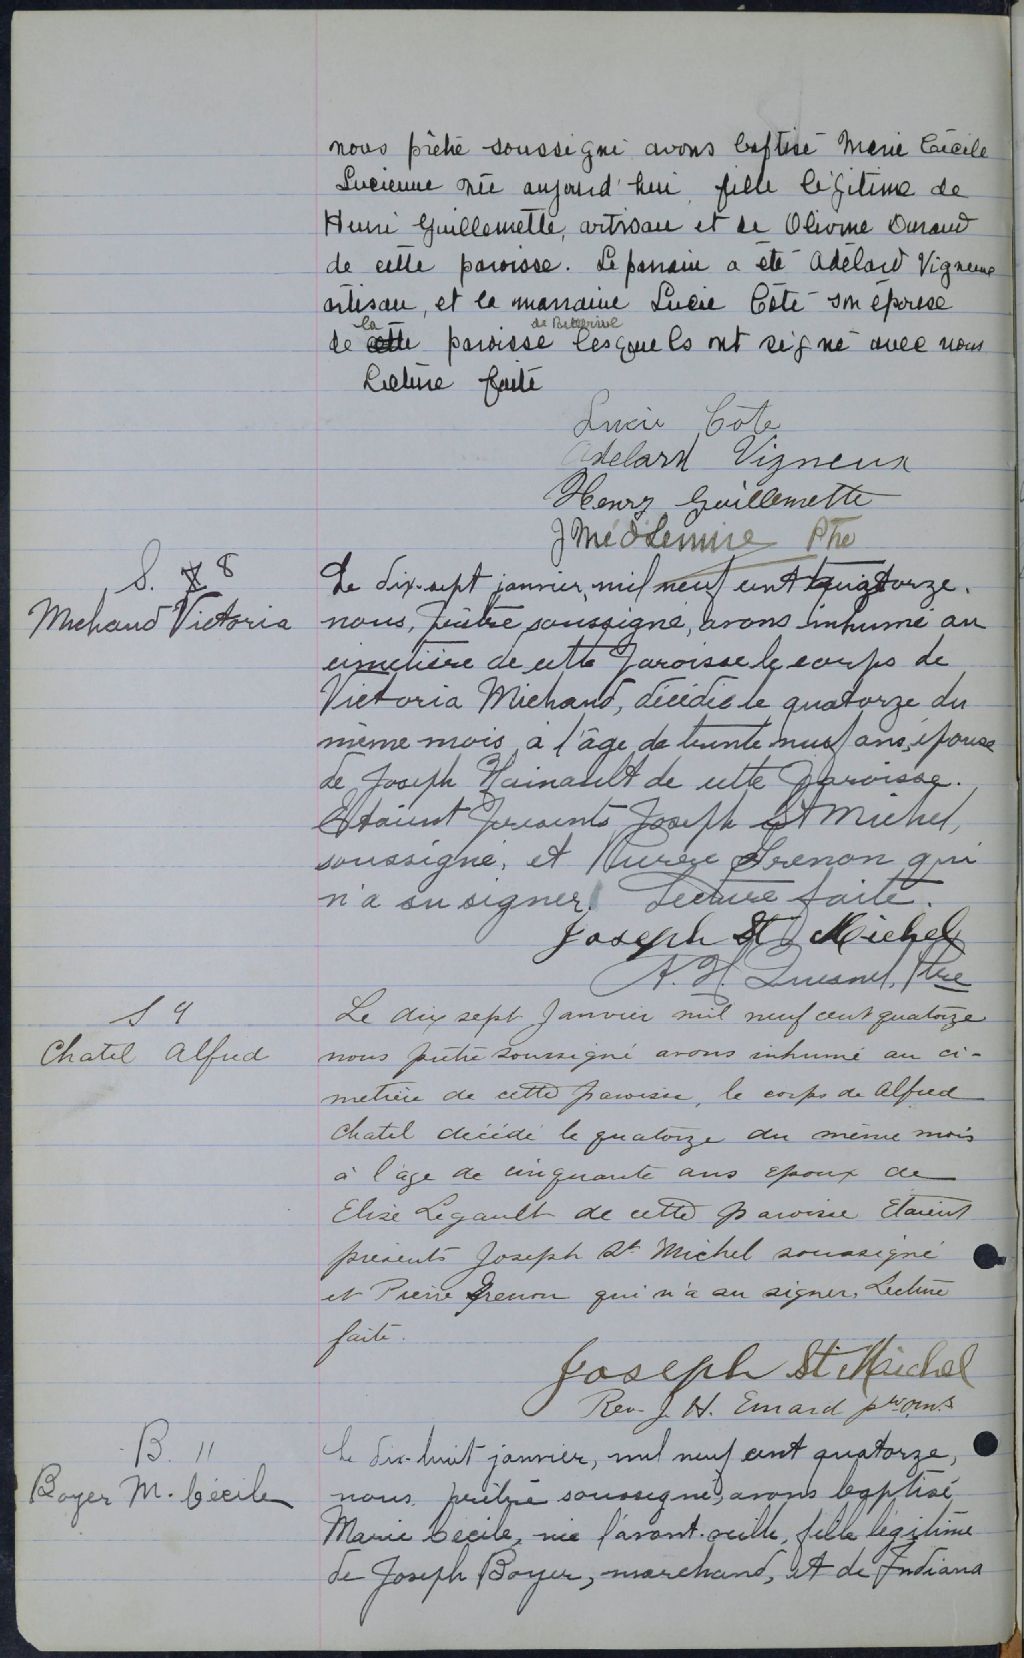 nous prêtre soussigné avons baptisé Marie Cécile
Lucienne née aujourd'hui, fille légitime de
Henri Guillemette, artisan et de Durand
de cette paroisse. Le parrain a été Adélard Vigneux
artisan, et la marraine Lucie Côté son épouse
la
de paroisse lesquels ont signé avec nous
Lecture faite
Lucie Côte
Adelard Vigneux
Henry Guillemette
Ptre
S. 8
Michaud Victoria
Le dix-sept janvier, mil neuf cent quatorze.
nous, prêtre soussigné, avons inhumé au
cimetière de cette paroisse le corps de
Victoria Michaud, décédée le quatorze du
même mois à l'âge de trente neuf ans, épouse
de Joseph Hainault de cette paroisse.
Etaient présents Joseph St Michel,
soussigné, et Pierre Grenon qui
n'a su signer. Lecture faite.
Joseph St Michel
A. H. Quesnel, Ptre
S 9
Chatel Alfred
Le dix sept Janvier mil neuf cent quatorze
nous prêtre soussigné avons inhumé au ci-
metière de cette paroisse, le corps de Alfred
Chatel décédé le quatorze du même mois
à l'âge de cinquante ans epoux de
Elise Legault de cette paroisse Etaient
présents Joseph St Michel soussigné
et Pierre Grenon qui n'a su signer. Lecture
faite.
Joseph St Michel
Rev. J. H. Emard
B. 11
Boyer M. Cécile
Le dix-huit janvier, mil neuf cent quatorze,
nous prêtre soussigné, avons baptisé
Marie Cécile, née l'avant-veille, fille légitime
de Joseph Boyer, marchand, et de Indiana